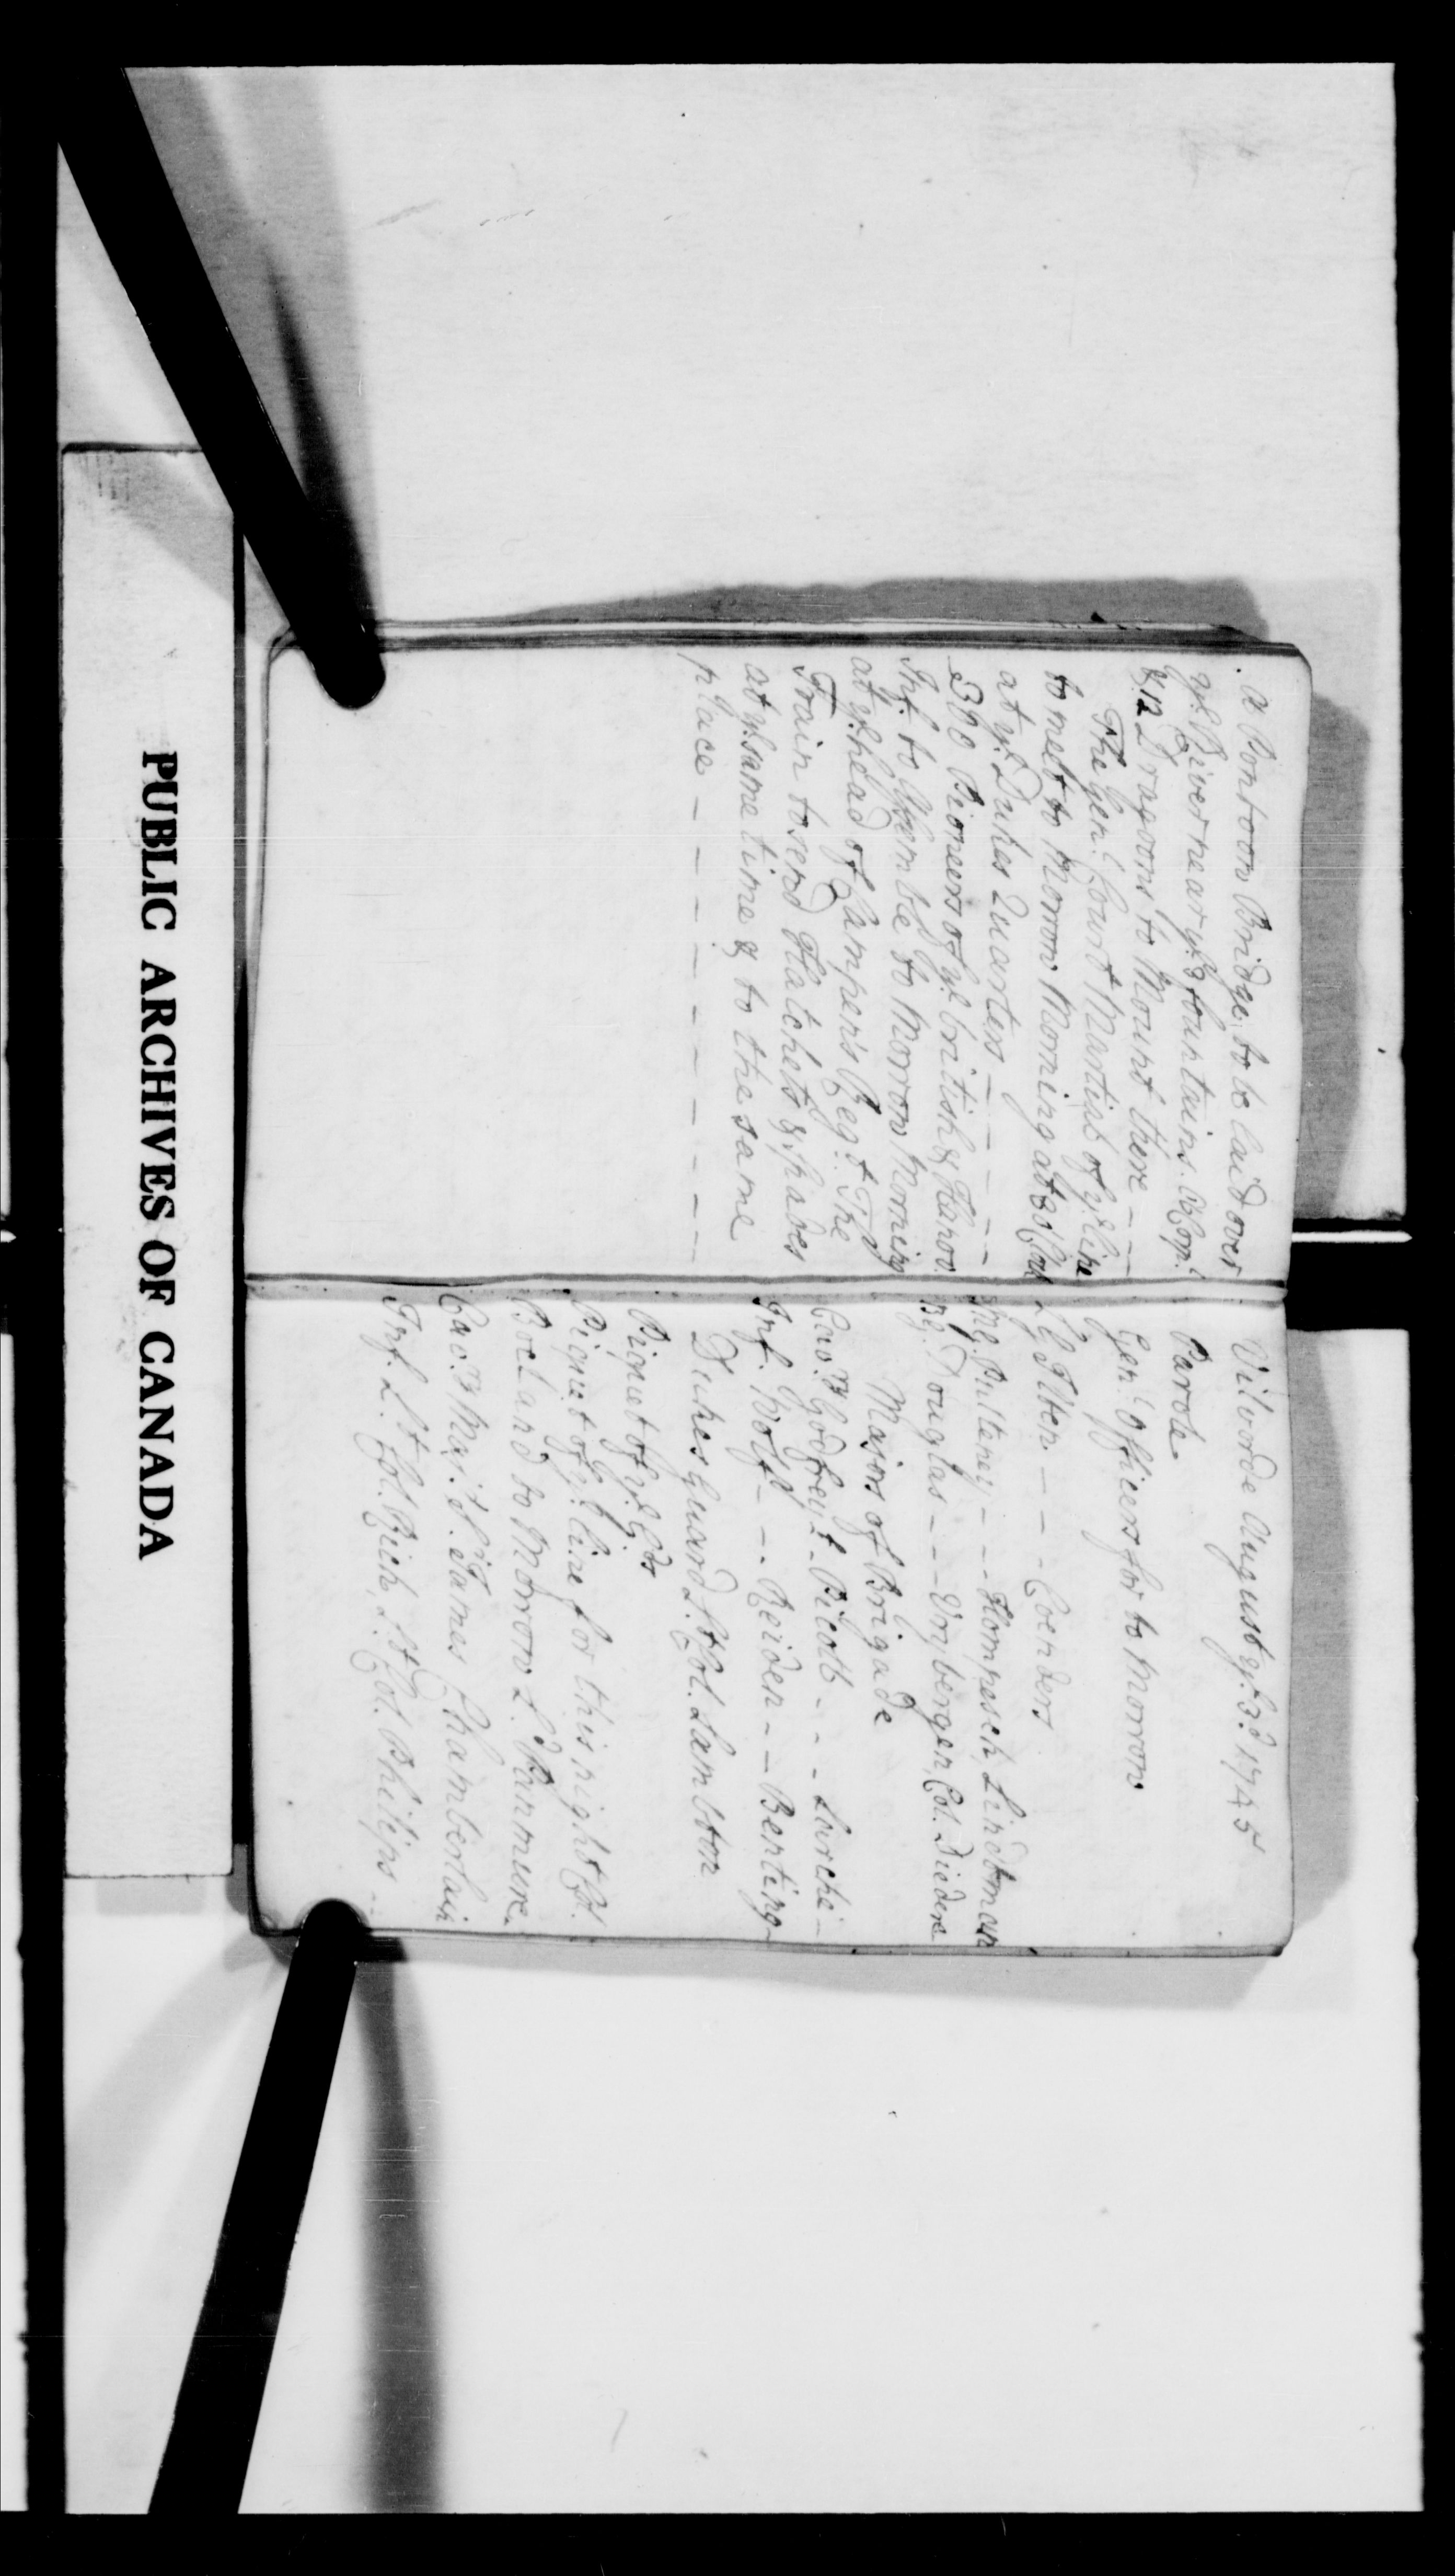 A Pontoon Bridge to be laid over
ye. River near ye. 3 fountains. A Corpl.
& 12 Dragoons to Mount there - -
The Genl. Court Martial of ye. Line
to meet to Morrow Morning at 8 o Clock
at ye. Dukes Quarters - - - - - -
300 Pioneers of ye. british & Hanov.
Inf. to Assemble to Morrow Morning
at ye. head of Campen's Regt. The
Train to send Hatchets & Spades
at ye. same time & to the same
place - - - - - - - - - -
Vilvorde August ye. 3d. 1745
Parole
Genl. Officers for to Morrow
L G Ilten - - - Coenders
M G. Pulteney - - - Hompesch, Lindtman
B G. Douglas - - - Vrybergen, Col. Diedere
Majors of Brigade
Cav. Godfrey - - - -
Inf. Wolfe - - . Reiden - - Benting -
Dukes Guard Lt. Col. Lambton
Piquet of ye. Gds
Piquet of ye. Line for this night Col.
Bockland to Morrow Ld. Panmure.
Cav. Maj. St. James Chamberlain
Inf. Lt. Col. Rich, Lt. Col. Philips - -
PUBLIC ARCHIVES OF CANADA